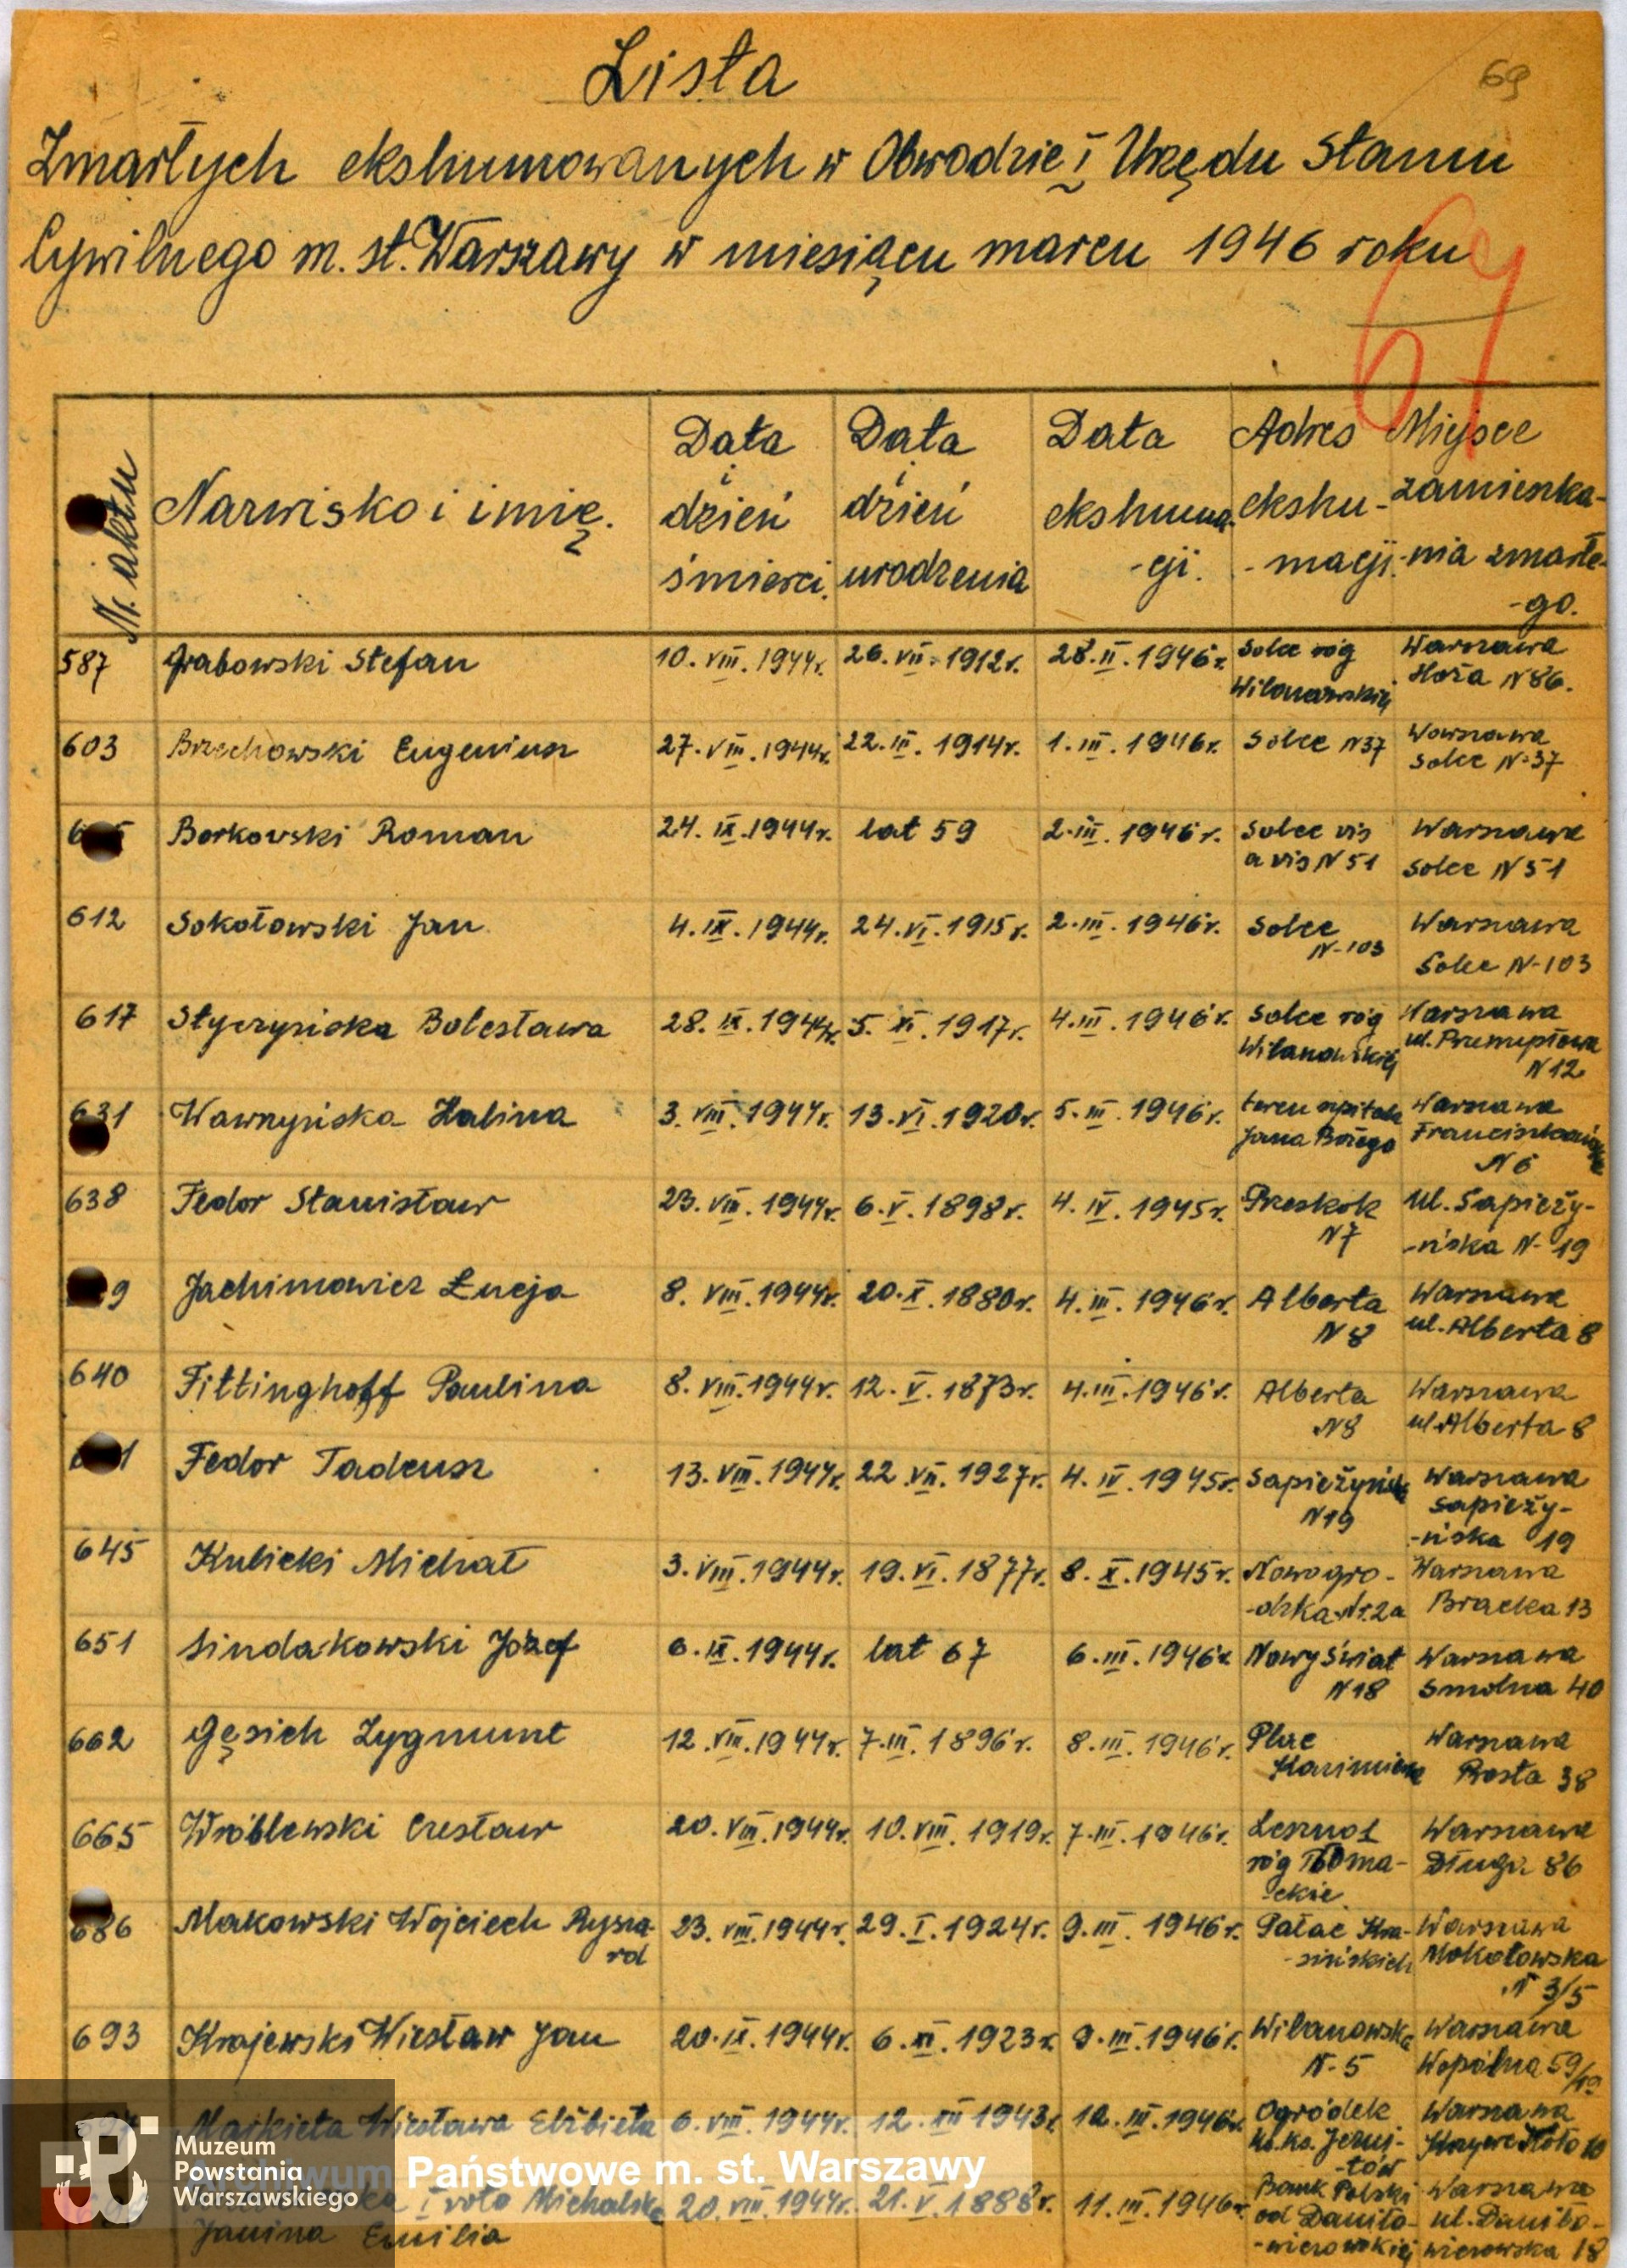 69
Lista
Zmarłych ekshumowanych w Obwodzie I Urzędu Stanu
Cywilnego m. st. Warszawy w miesiącu marcu 1946 roku
67
Nr. aktu
Nazwisko i imię.
Data i dzień śmierci.
Data i dzień urodzenia
Data ekshuma-cji.
Adres ekshu--macji.
Miejsce zamieszka--nia zmarłe--go.
587 Grabowski Stefan 10.VIII.1944r. 26.VII.1912r. 28.II.1946r. Solec róg Wilanowskiej Warszawa Hoża N 86.
603 Brzechowski Eugeniusz 27.VIII.1944r. 22.III.1914r. 1.III.1946r. Solec N 37 Warszawa Solec N-37
Borkowski Roman 24.IX.1944r. lat 59 2.III.1946r. Solec vis a vis N 51 Warszawa Solec N 51
612 Sokołowski Jan 4.IX.1944r. 24.VI.1915r. 2.III.1946r. Solec N-103 Warszawa Solec N-103
617 Styczyńska Bolesława 28.IX.1944r. 5.XI.1917r. 4.III.1946r. Solec róg Wilanowskiej Warszawa ul. N 12
631 Wawrzyńska Halina 3.VIII.1944r. 13.VI.1920r. 5.III.1946r. teren szpitala Jana Bożego Warszawa Franciszkańska N 6
638 Fedor Stanisław 23.VIII.1944r. 6.V.1898r. 4.IV.1945r. Przeskok N 7 ul. Sapieży--ńska N-19
9 Jachimowicz Łucja 8.VIII.1944r. 20.X.1880r. 4.III.1946r. Alberta N 8 Warszawa ul. Alberta 8
640 Fittinghoff Paulina 8.VIII.1944r. 12.V.1873r. 4.III.1946r. Alberta N8 Warszawa ul. Alberta 8
1 Fedor Tadeusz 13.VIII.1944r. 22.VII.1927r. 4.IV.1945r. Sapieżyńska N 19 Warszawa Sapieży--ńska 19
645 Kubicki Michał 3.VIII.1944r. 19.VI.1877r. 8.X.1945r. Nowogro--dzka Nr. 2a Warszawa Bracka 13
651 Sindakowski Józef 6.IX.1944r. lat 67 6.III.1946r. Nowy Świat N 18 Warszawa Smolna 40
662 Gęsich Zygmunt 12.VIII.1944r. 7.III.1896r. 8.III.1946r. Plac Kazimierza Warszawa Prosta 38
665 Wróblewski Czesław 20.VIII.1944r. 10.VIII.1919r. 7.III.1946r. Leszno 1 róg Tłoma-ckie Warszawa Długa 86
686 Makowski Wojciech Rysza-rd 23.VIII.1944r. 29.I.1924r. 9.III.1946r. Pałac Kra--sińskich Warszawa Mokotowska N 3/5
693 Krajewski Wiesław Jan 20.IX.1944r. 6.XI.1923r. 9.III.1946r. Wilanowska N-5 Warszawa Wspólna 59/19
Wiesława Elżbieta 6.VIII.1944r. 12.XII.1943r. 10.III.1946r. Ogródek Jezui--tów Warszawa 10
I voto Michalska Janina Emilia 20.VIII.1944r. 21.V.1888r. 11.III.1946r. Bank Polski od Daniło--wiczowskiej Warszawa ul. Daniło--wiczowska 18
Muzeum
Powstania
Warszawskiego
Archiwum Państwowe m. st. Warszawy